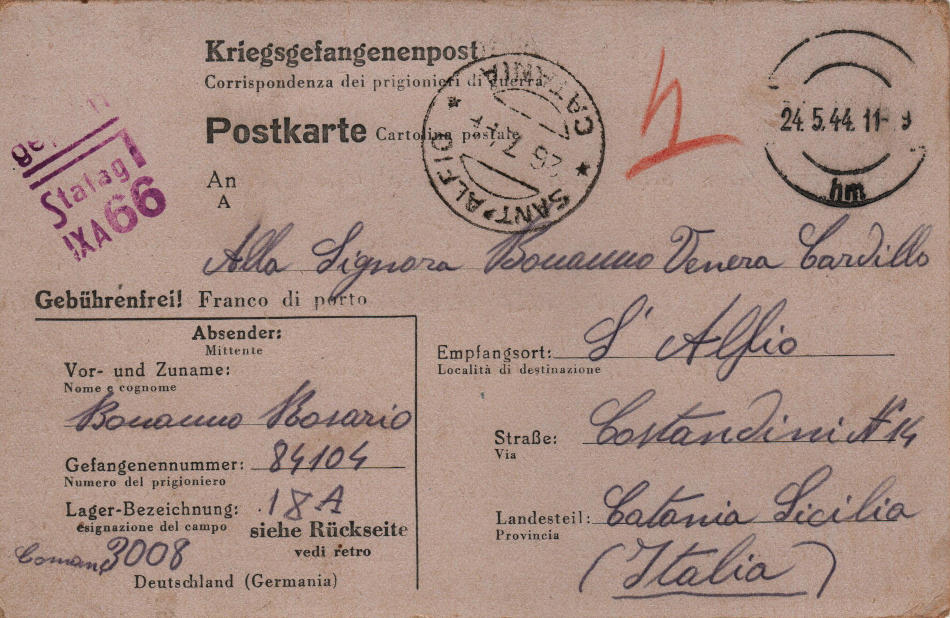 Kriegsgefangenenpost
Corrispondenza dei prigionieri di guerra
Postkarte Cartolina postale
SANT'ALFIO
CATANIA
26 7
24.5.44. 11- 9
hm
Stalag
IXA 66
An
A
Alla Signora Bonanno Venera Cardillo
Gebührenfrei! Franco di porto
Absender:
Mittente
Vor- und Zuname:
Nome e cognome
Bonanno Rosario
Gefangenennummer: 84104
Numero del prigioniero
Lager-Bezeichnung: 18A
esignazione del campo
siehe Rückseite
vedi retro
3008
Deutschland (Germania)
Empfangsort: S' Alfio
Località di destinazione
Straße: Costandini N° 14
Via
Landesteil: Catania Sicilia
Provincia
(Italia)